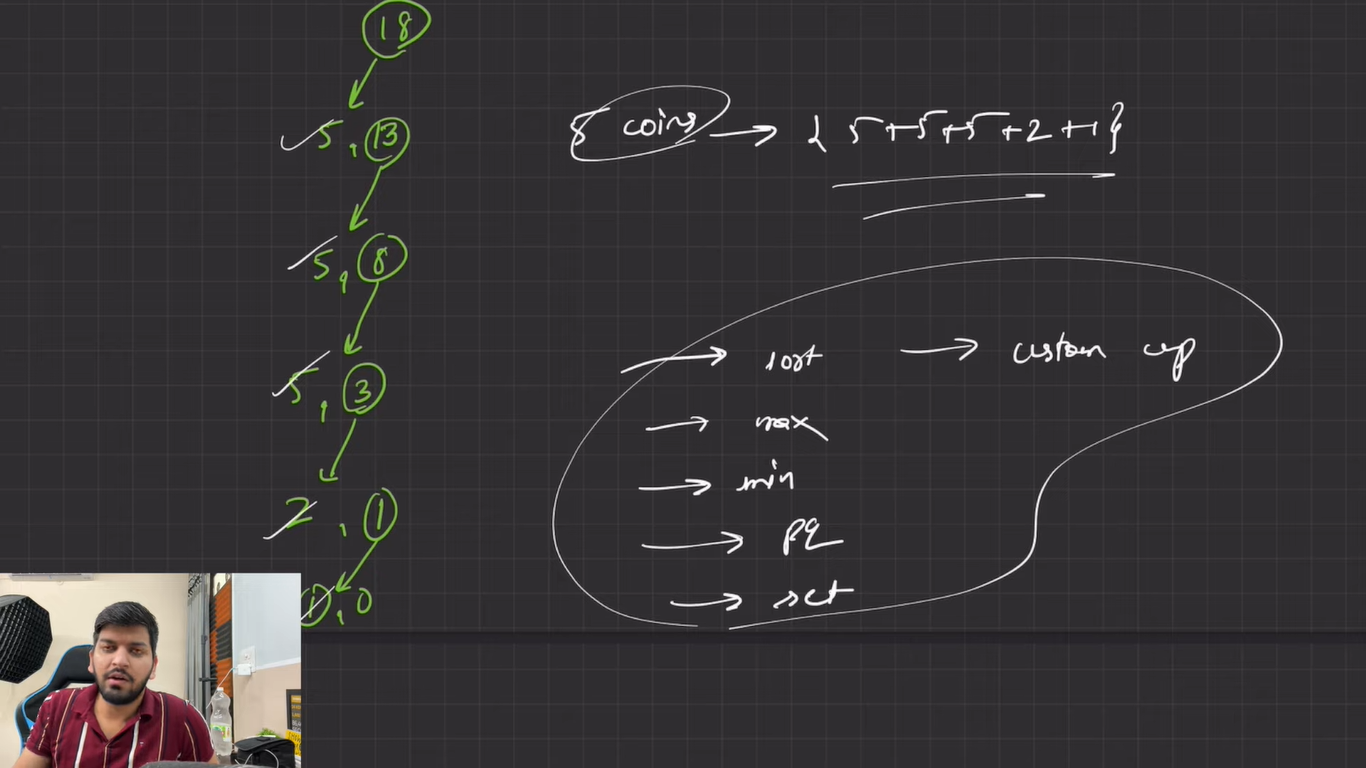 18
5, 13
5, 8
5, 3
2, 1
1, 0
8 coins → { 5+5+5+2+1}
→ sort → custom cmp
→ max
→ min
→ PQ
→ set